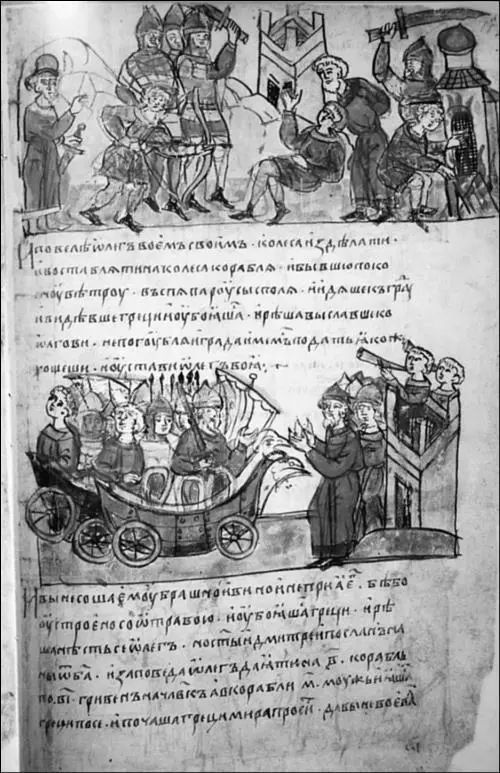 И повелѣ ѡлигъ воемъ своимъ · колеса издѣлати ·
и воставляти на колеса корабля · и бывшю поко
сноу вѣтроу · въспѧ пароусы с поля · и идѧше къ граⷣ
и видѣвше греци и оубоꙗшаⷭ · и рѣша выславше ко
ѡлгови · не погоублѧи града имемъ подать ꙗкоⷤ
хощеши · и оустави ѡлегъ вои ·
И вынесоша емоу брашно и вино и не приꙗ еⷢ · бѣ бо
оустроено со ѡтравою · и оубоꙗшаⷭ греци · и рѣ
ша нѣсть се ѡлегъ · но ст҃ыи дмитреи посланъ на
ны ѿ б҃а · и заповеда ѡлегъ даꙗти на в҃ корабль
по в҃і гривенъ на чл҃вкъ а в корабли м҃ моужьи · и ꙗшаⷭ
греци по се · и почаша греци мира просиⷮ · дабы не воева